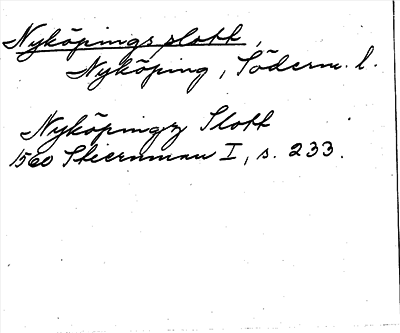 Nyköpings slott,
Nyköping, Söderm. l.
Nyköpingz Slott
1560 Stiernman I, s. 233.